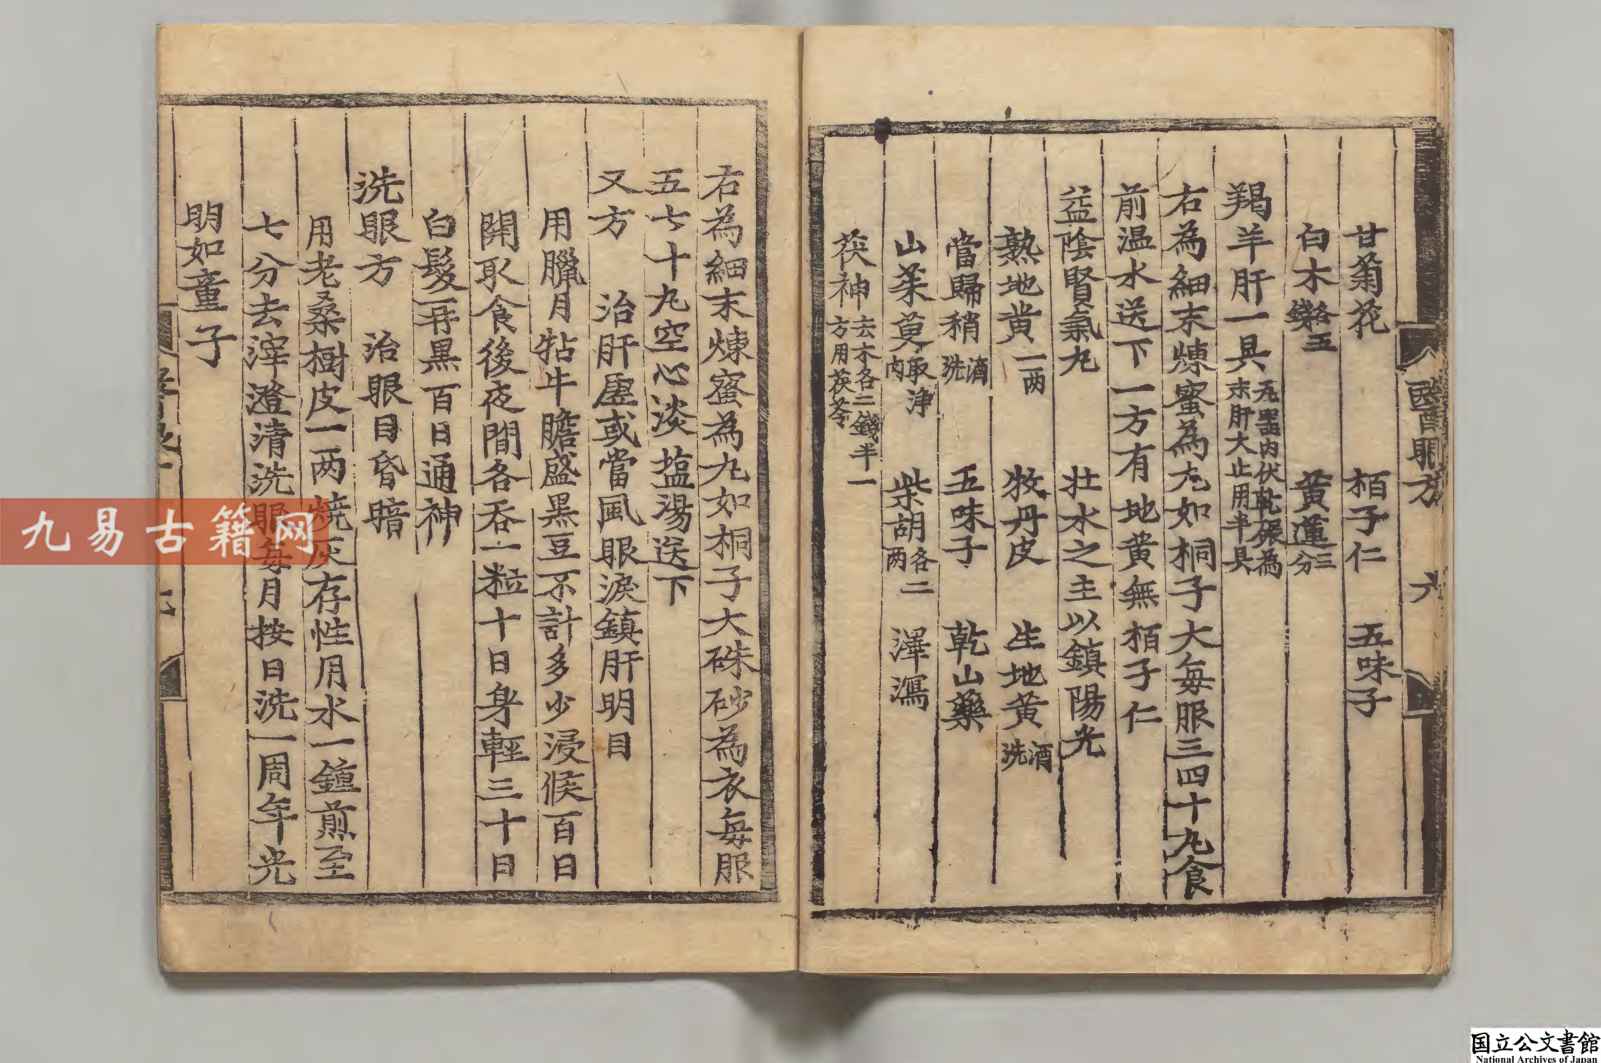 甘菊花　栢子仁　五味子
白木 各五錢　黄蓮 三分
羯羊肝一具 瓦器内伏乾碾為末肝大止用半具
右為細末煉蜜為丸如桐子大每服三四十丸食
前温水送下一方有地黄無栢子仁
益陰腎氣丸　壯水之主以鎮陽光
熟地黄 一两　牧丹皮　生地黄 酒洗
當歸稍 酒洗　五味子　乾山藥
山茱萸 取净内　柴胡 各二两　澤瀉
茯神 去木各二錢半一方用茯苓
右為細末煉蜜為丸如桐子大硃砂為衣每服
五七十丸空心淡塩湯送下
又方　治肝虛或當風眼淚鎮肝明目
用臘月牯牛膽盛黑豆不計多少浸候百日
開取食後夜間各吞一粒十日身輕三十日
白髮再黑百日通神
洗眼方　治眼目昏暗
用老桑樹皮一两燒灰存性用水一鍾煎至
七分去滓澄清洗眼每月按日洗一周年光
明如童子
醫眼方　六
九易古籍网
国立公文書館
National Archives of Japan